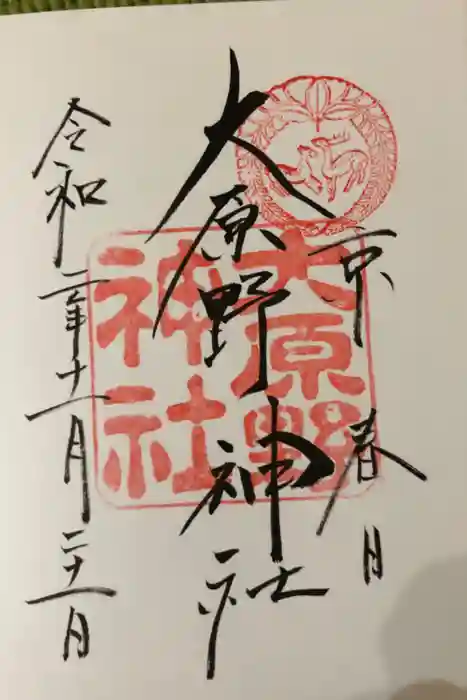 京春日
大原野神社
令和二年十一月二十一日
大原野
神社